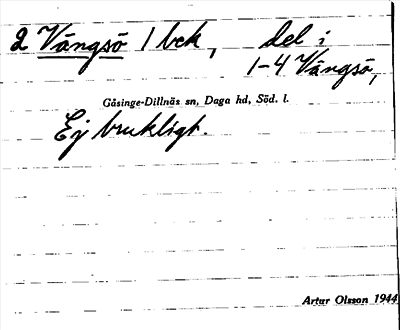 2 Vängsö 1 bek, del i
1-4 Vängsö,
Gåsinge-Dillnäs sn, Daga hd, Söd. l.
Ej brukligt.
Artur Olsson 1944